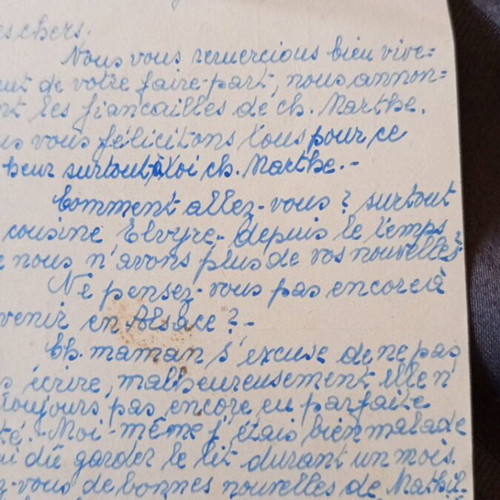 es chers.
Nous vous remercions bien vive=
ent de votre faire-part, nous annon=
nt les fiancailles de ch. Marthe.
us vous félicitons tous pour ce
heur surtout à toi ch. Marthe.-
Comment allez-vous? surtout
cousine Elvyre- depuis le temps
e nous n'avons plus de vos nouvelles.
Ne pensez-vous pas encore à
venir en Alsace?-
Ch. maman s'excuse de ne pas
s écrire, malheureusement elle n'
toujours pas encore en parfaite
té.- Moi-même j'étais bien malade
i dû garder le lit durant un mois.
z-vous de bonnes nouvelles de Mathil-